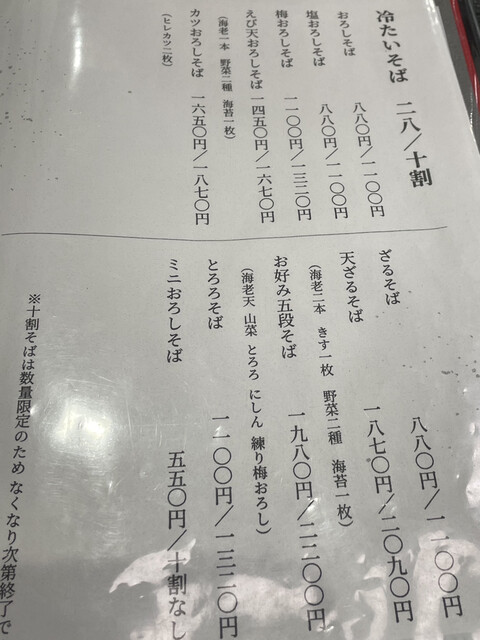 冷たいそば 二八／十割
おろしそば 八八〇円／一一〇〇円
塩おろしそば 八八〇円／一一〇〇円
梅おろしそば 一一〇〇円／一三二〇円
えび天おろしそば 一四五〇円／一六七〇円
（海老一本 野菜二種 海苔一枚）
カツおろしそば 一六五〇円／一八七〇円
（ヒレカツ二枚）
ざるそば 八八〇円／一一〇〇円
天ざるそば 一八七〇円／二〇九〇円
（海老二本 きす一枚 野菜二種 海苔一枚）
お好み五段そば 一九八〇円／二二〇〇円
（海老天 山菜 とろろ にしん 練り梅おろし）
とろろそば 一一〇〇円／一三二〇円
ミニおろしそば 五五〇円／十割なし
※十割そばは数量限定のため なくなり次第終了で